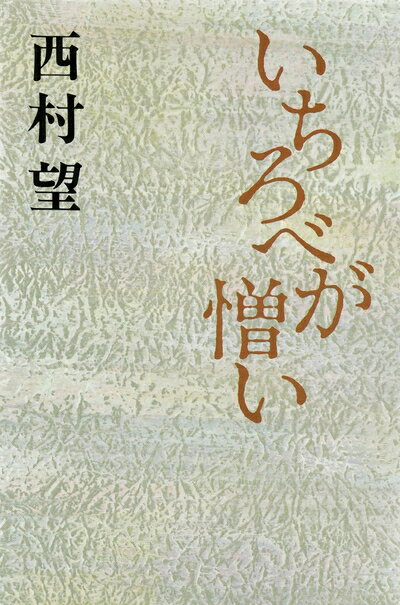 いちろべが
憎い
西村望